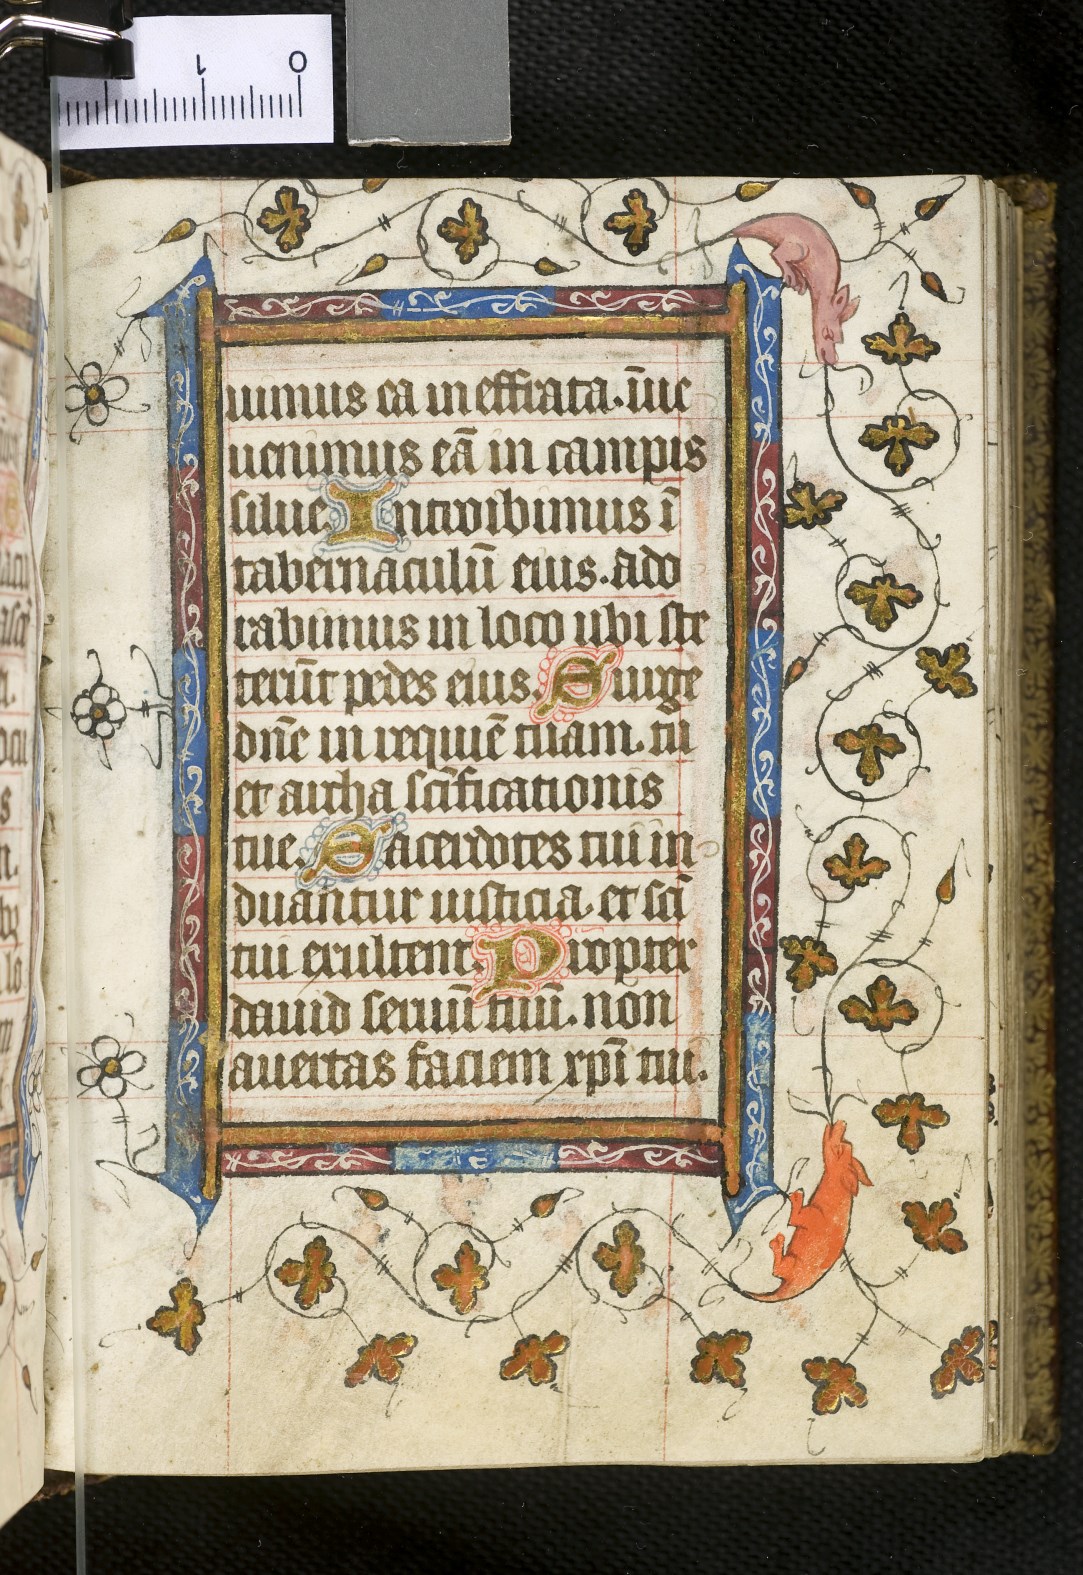 uimus ea in effrata. īue
uenimus eā in campis
silue. Introibimus ī
tabernaculū eius. ado
rabimus in loco ubi ste
terūt pedes eius. Surge
dn̄e in requiē tuam. tu
et archa scīficationis
tue. Sacerdotes tui in
duantur iusticia. et scī
tui exultent. Propter
dauid seruū tuū. non
auertas faciem xpī tui.